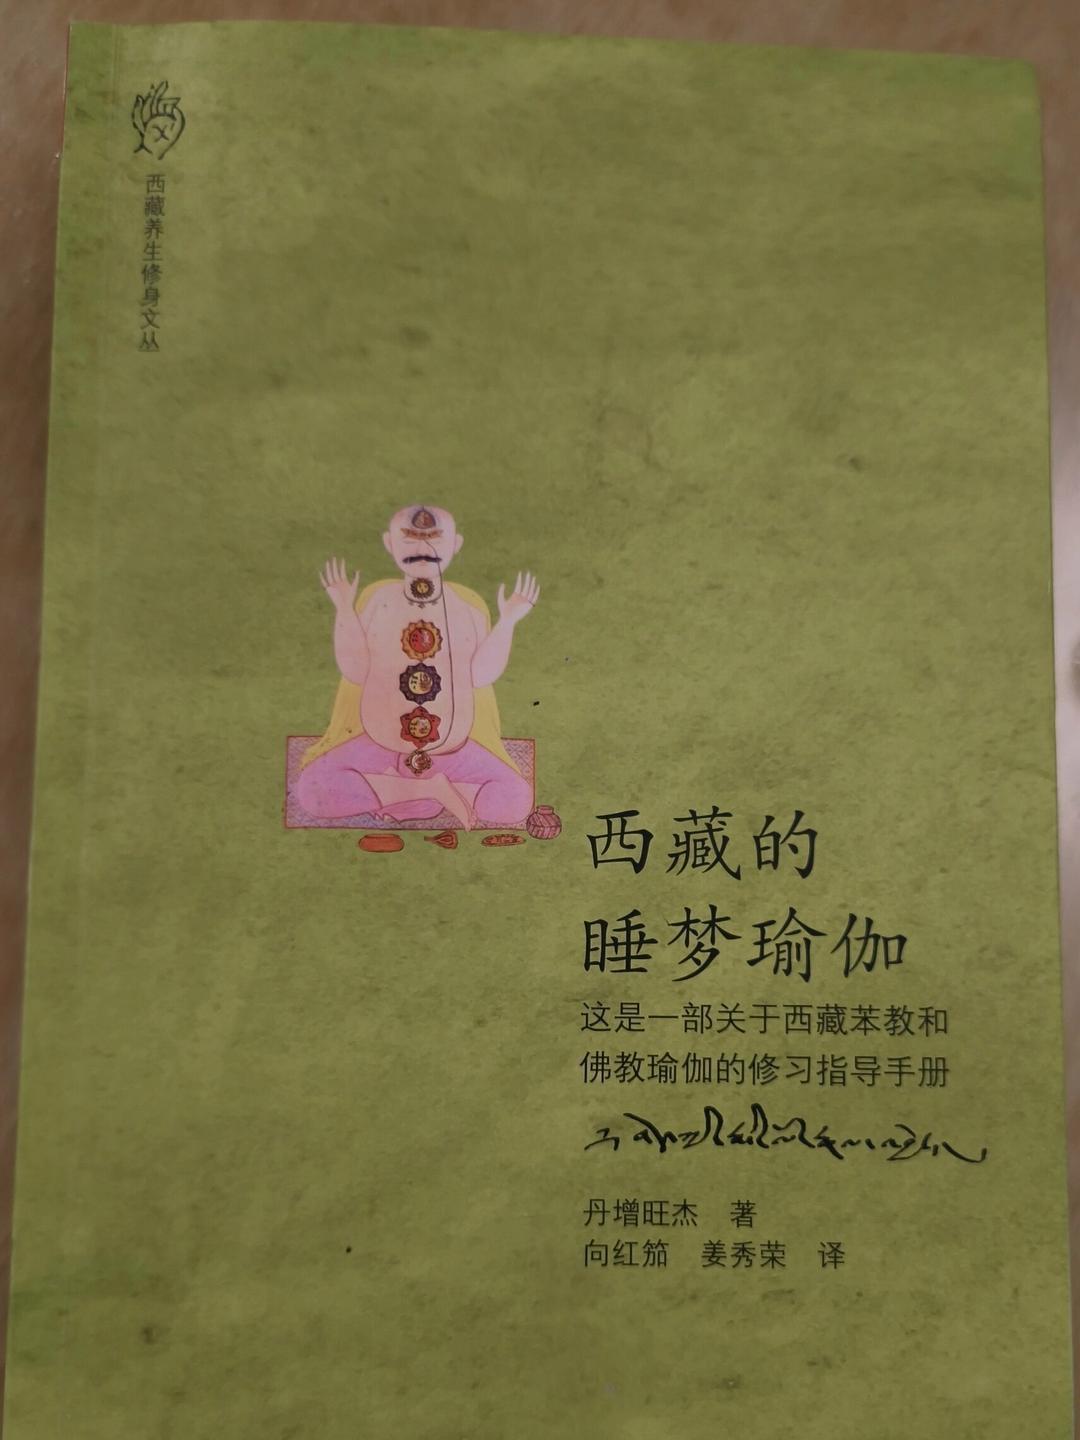 西藏养生修身文丛
西藏的
睡梦瑜伽
这是一部关于西藏苯教和
佛教瑜伽的修习指导手册
丹增旺杰 著
向红笳 姜秀荣 译